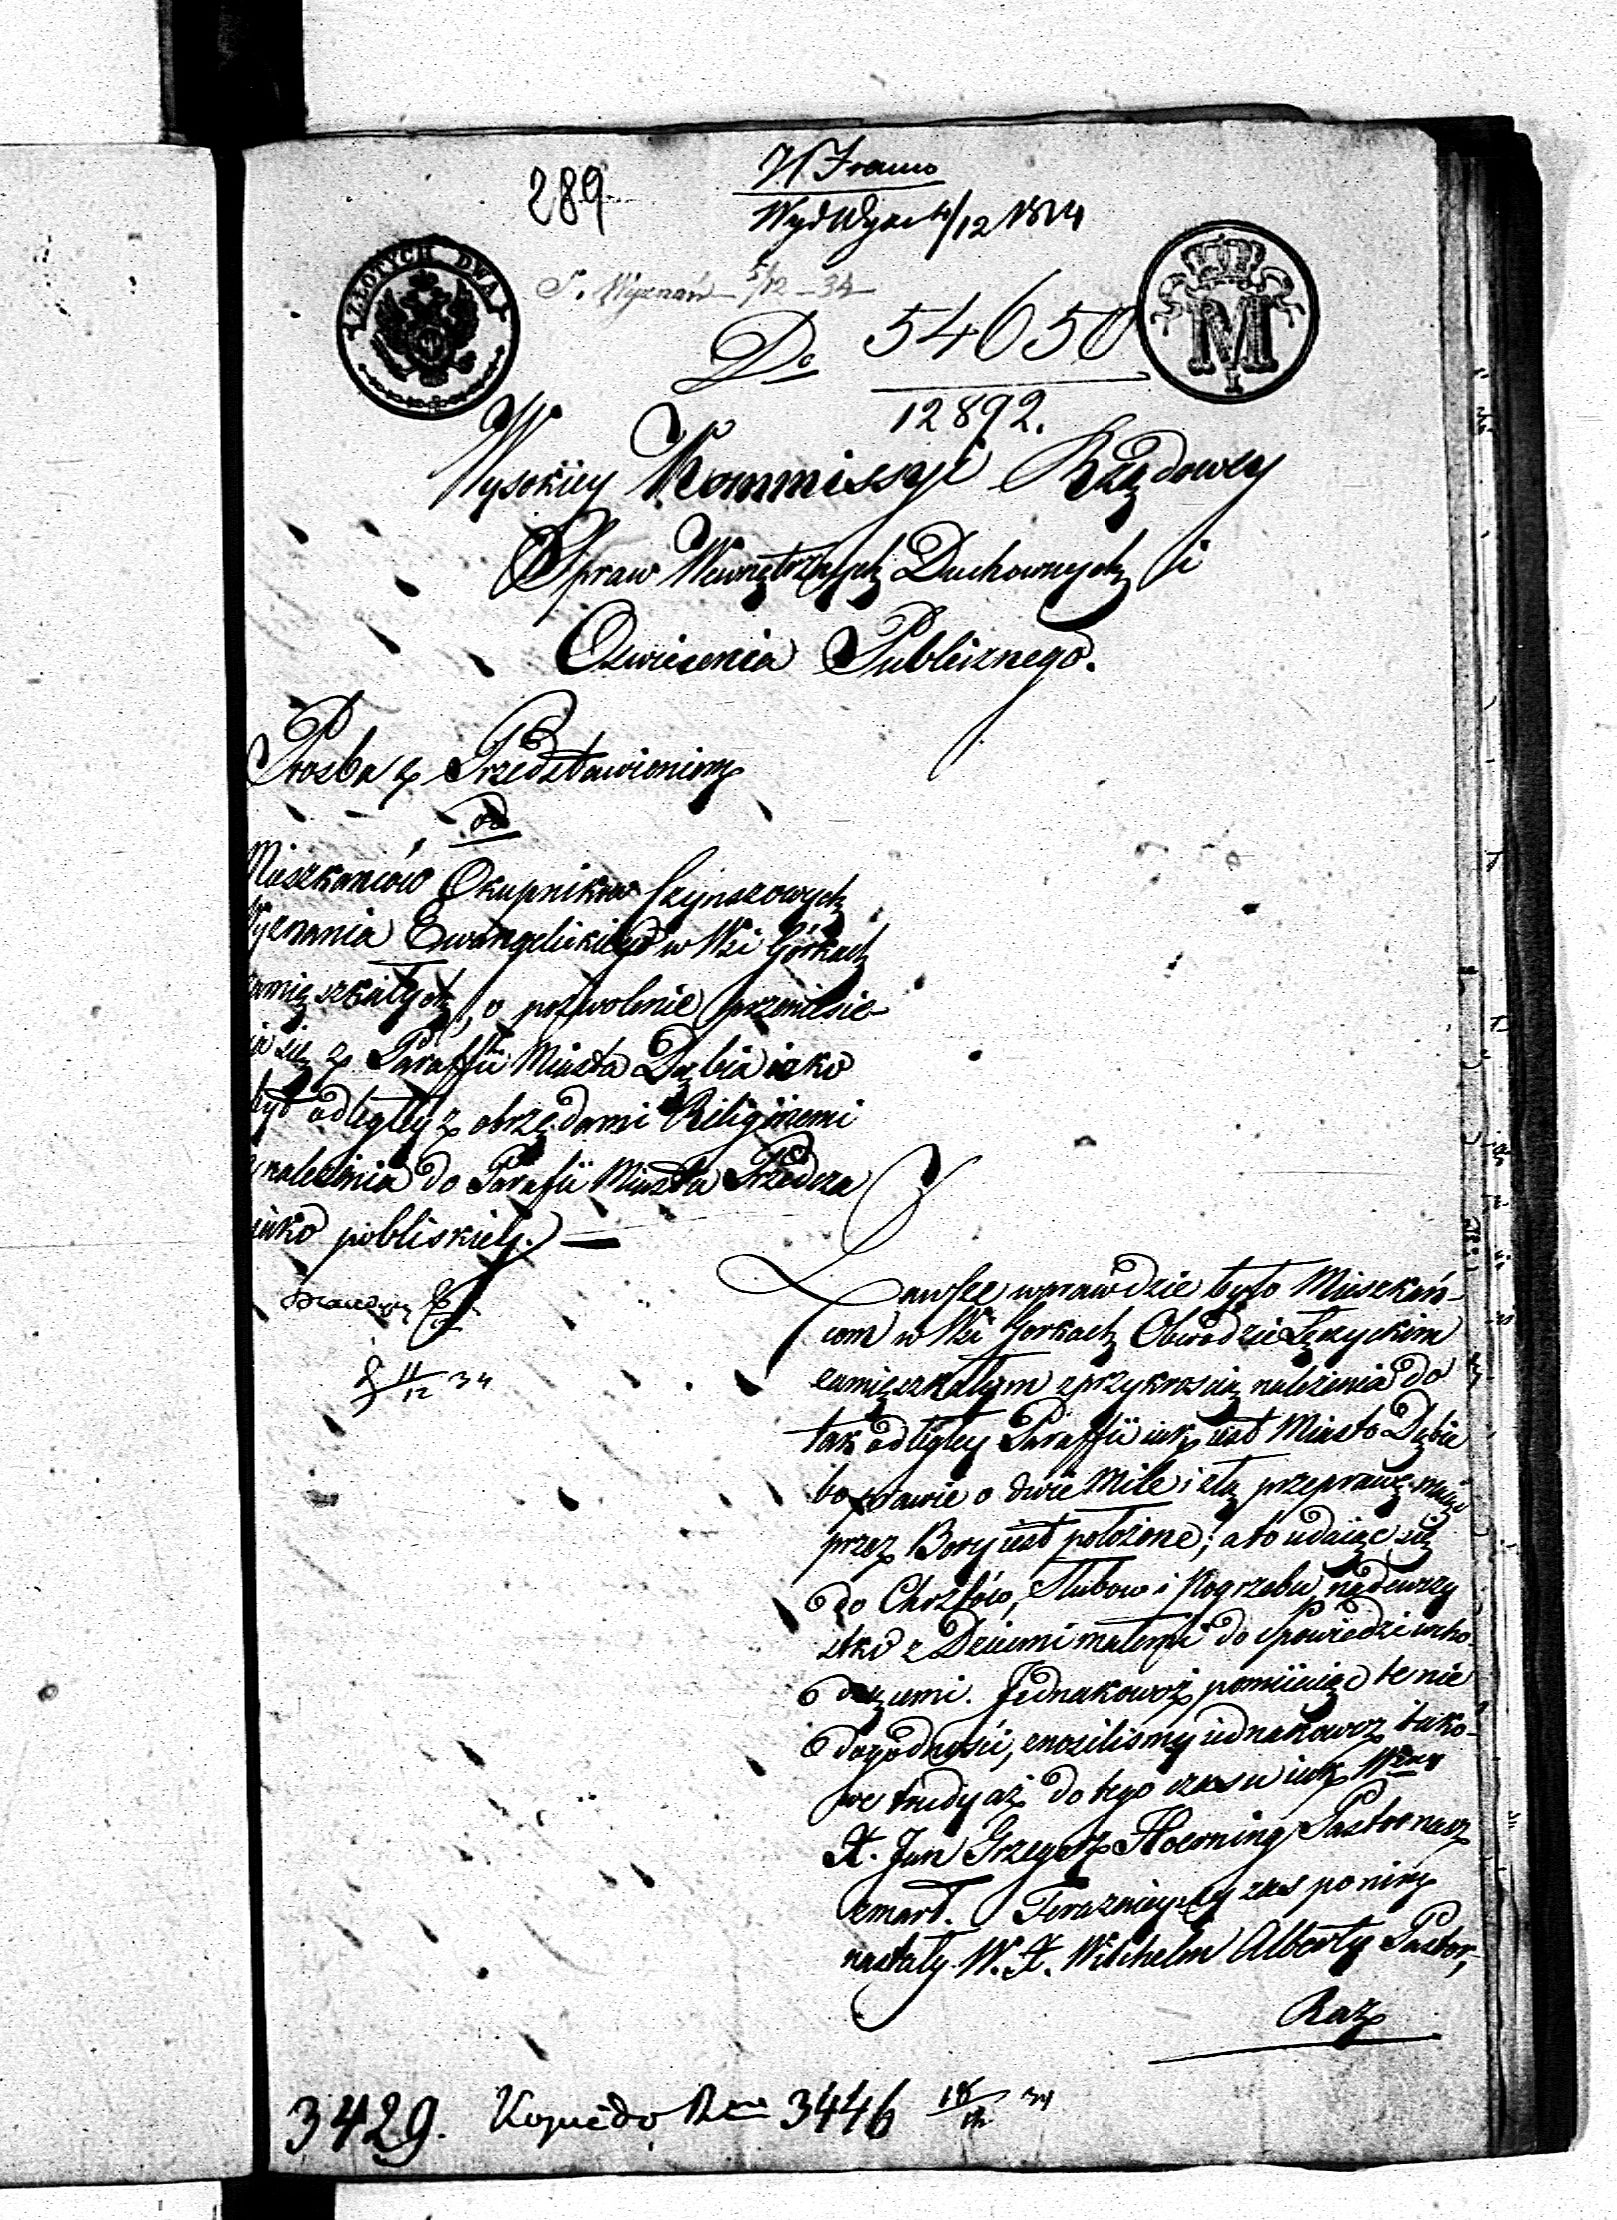 289
Wyd Wyzn 4/12 1834
ZŁOTYCH DWA
S. Wyznań 5/12 – 34
M
Do 54650
12892.
Wysokiey Kommissyi Rządowey
Spraw Wewnętrznych Duchownych i
Oświecenia Publicznego.
Prozba z Przedstawieniem
od
Mieszkańców Okupników Czynszowych
Wyznania Ewangelickiego w Wsi Górkach
zamięszkałych, o pozwolenie przeniesie-
nia się z Paraffii Miasta Dąbia iako
zbyt odległey z obrzędami Religiinemi
należenia do Parafii Miasta Przedcza
iako pobliskiey. —
11/12 34
Zawsze wprawdzie było Mieszkań-
com w Wsi Gorkach Obwodzie Łęczyckim
zamięszkałym z przykrością należenia do
tak odległey Paraffii iak iest Miasto Dąbie
bo prawie o dwie Mile i złą przeprawę maiąc
przez Bory iest położone; a to udaiąc się
do Chrztów, Slubow i Pogrzebu nadewszy
stko z Dziecmi małemi do Spowiedzi wcho-
dzącemi. Jednakowoż pomiiaiąc te nie
dogodności, znosilismy iednakowoż tako-
we trudy aż do tego czasu iak
X. Jan Grzegorz Hoerning Pastor nasz
zmarł. Terazniejszy zas po nim
nastały W. X. Wilchelm Alberty Pastor,
Raz
3429. 3446 18/12 34